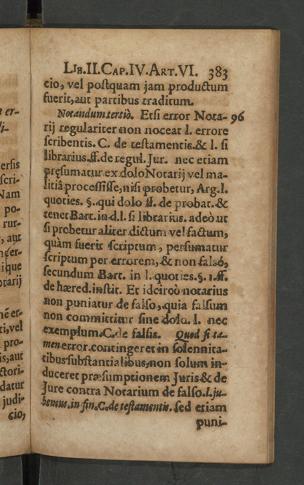 LIB.II.CAP.IV.ART.VI. 383
cio, vel postquam jam productum
fuerit, aut partibus traditum.
Notandum tertiò. Etsi error Nota- 96
rij regulariter non noceat l. errore
scribentis. C. de testamentis. & l. si
librarius. ff. de regul. Jur. nec etiam
præsumatur ex dolo Notarij vel ma-
litiâ processisse, nisi probetur, Arg. l.
quoties. §. qui dolo ff. de probat. &
tenet Bart. in d. l. si librarius. adeò ut
si probetur aliter dictum vel factum,
quàm fuerit scriptum, persumatur
scriptum per errorem, & non falsò,
secundum Bart. in l. quoties. §. 1. ff.
de hæred. instit. Et idcircò notarius
non puniatur de falso, quia falsum
non committitur sine dolo. l. nec
exemplum. C. de falsis. Quod si ta-
men error contingeret in solennita-
tibus substantialibus, non solum in-
duceret præsumptionem Juris & de
Jure contra Notarium de falso. l. ju-
bemus. in fin. C. de testamentis. sed etiam
puni-